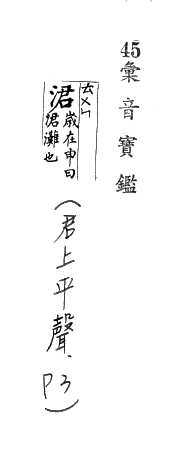 45彙音寶鑑
ㄊㄨㄣ
涒 歲在申曰
涒灘也
(君上平聲、P3)